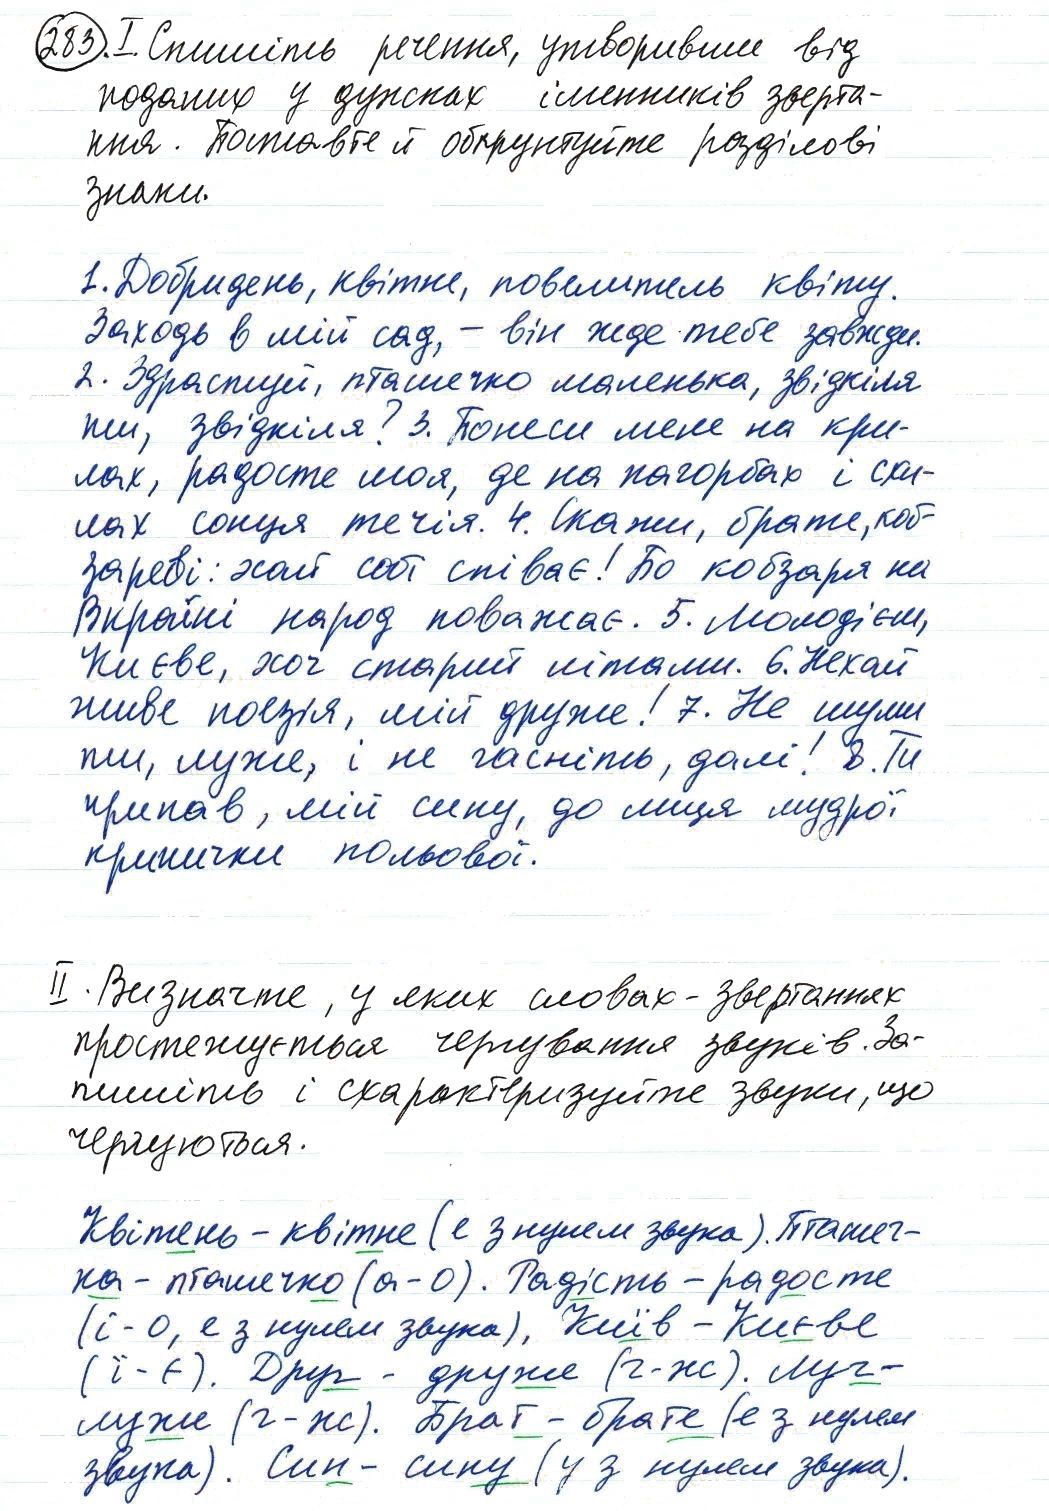 283. I. Спишіть речення, утворивши від
поданих у дужках іменників зверта-
ння. Поставте й обґрунтуйте розділові
знаки.
1. Добридень, квітне, повелитель квіту.
Заходь в мій сад, – він жде тебе завжди.
2. Здрастуй, пташечко маленька, звідкіля
ти, звідкіля? 3. Понеси мене на кри-
лах, радосте моя, де на пагорбах і схи-
лах сонця течія. 4. Скажи, брате, коб-
зареві: хай собі співає! Бо кобзаря на
Вкраїні народ поважає. 5. Молодієш,
Києве, хоч старий літами. 6. Нехай
живе поезія, мій друже! 7. Не шуми
ти, луже, і не гасніть, далі! 8. Ти
припав, мій сину, до лиця мудрої
кринички польової.
II. Визначте, у яких словах-звертаннях
простежується чергування звуків. За-
пишіть і схарактеризуйте звуки, що
чергуються.
Квітень – квітне (е з нулем звука). Пташеч-
ка – пташечко (а-о). Радість – радосте
(і-о, е з нулем звука), Київ – Києве
(ї-є). Друг - друже (г-ж). Луг-
луже (г-ж). Брат – брате (е з нулем
звука). Син – сину (у з нулем звука).